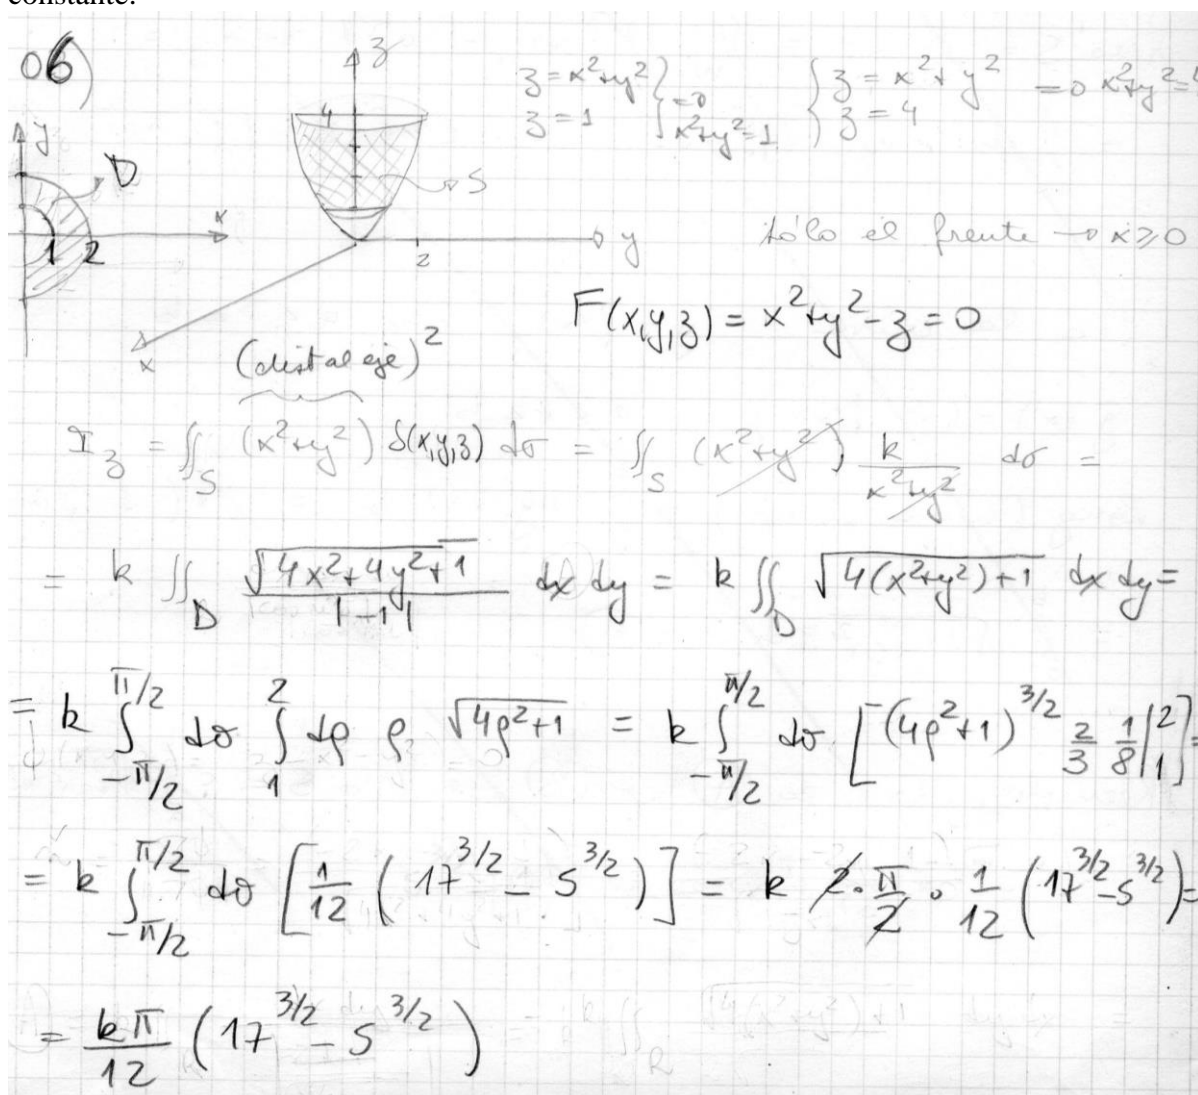 constante.
06)
z = x²+y²
z = 1 } => x²+y²=1
{ z = x²+y²
z = 4 => x²+y²=4
z
4
y
D
x
1 2
S
y
2
x
sólo el frente → x≥0
F(x,y,z) = x²+y²-z = 0
(dist al eje)²
I_z = ∬_S (x²+y²) δ(x,y,z) dσ = ∬_S (x²+y²) k/(x²+y²) dσ =
= k ∬_D √(4x²+4y²+1)/|-1| dx dy = k ∬_D √(4(x²+y²)+1) dx dy =
= k ∫_{-π/2}^{π/2} dθ ∫_1^2 dρ ρ √(4ρ²+1) = k ∫_{-π/2}^{π/2} dθ [(4ρ²+1)^{3/2} 2/3 1/8 |_1^2] =
= k ∫_{-π/2}^{π/2} dθ [1/12 (17^{3/2} - 5^{3/2})] = k 2·π/2 · 1/12 (17^{3/2} - 5^{3/2}) =
= kπ/12 (17^{3/2} - 5^{3/2})